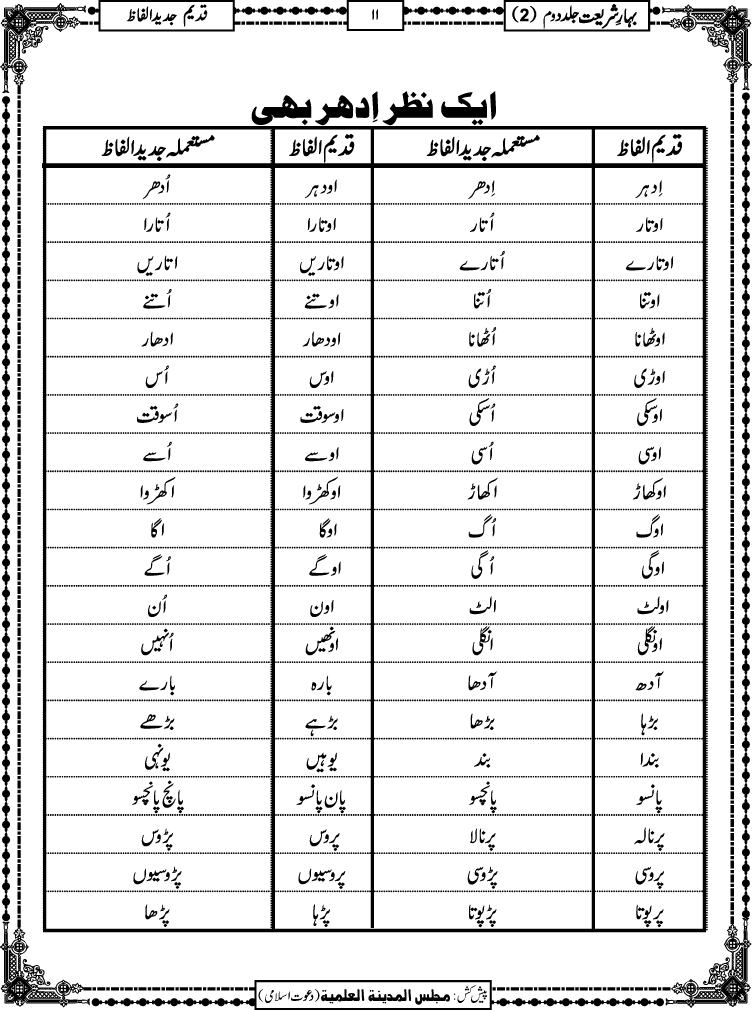 بہارِشریعت جلددوم (2) ۱۱ قدیم جدیدالفاظ
ایک نظر اِدھر بھی
قدیم الفاظ مستعملہ جدیدالفاظ قدیم الفاظ مستعملہ جدیدالفاظ
اِدہر اِدھر اودہر اُدھر
اوتار اُتار اوتارا اُتارا
اوتارے اُتارے اوتاریں اتاریں
اوتنا اُتنا اوتنے اُتنے
اوٹھانا اُٹھانا اودھار ادھار
اوڑی اُڑی اوس اُس
اوسکی اُسکی اوسوقت اُسوقت
اوسی اُسی اوسے اُسے
اوکھاڑ اکھاڑ اوکھڑوا اکھڑوا
اوگ اُگ اوگا اگا
اوگی اُگی اوگے اُگے
اولٹ الٹ اون اُن
اونگلی انگلی اونھیں اُنہیں
آدھ آدھا بارہ بارے
بڑہا بڑھا بڑہے بڑھے
بندا بند یوہیں یونہی
پانسو پانچسو پان پانسو پانچ پانچسو
پرنالہ پرنالا پروس پڑوس
پروسی پڑوسی پروسیوں پڑوسیوں
پرپوتا پڑپوتا پڑہا پڑھا
پیش کش: مجلس المدینة العلمیة (دعوت اسلامی)